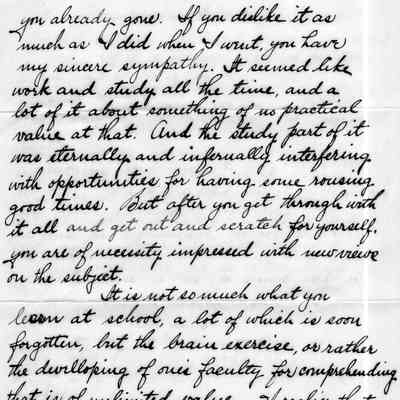 you already gone. If you dislike it as
much as I did when I went, you have
my sincere sympathy. It seemed like
work and study all the time, and a
lot of it about something of no practical
value at that. And the study part of it
was eternally and infernally interfering
with opportunities for having some rousing
good times. But after you get through with
it all and get out and scratch for yourself,
you are of necessity impressed with new views
on the subject.
It is not so much what you
learn at school, a lot of which is soon
forgotten, but the brain exercise, or rather
the devilloping of one's faculty for comprehending
that is of unlimited value. I realize that